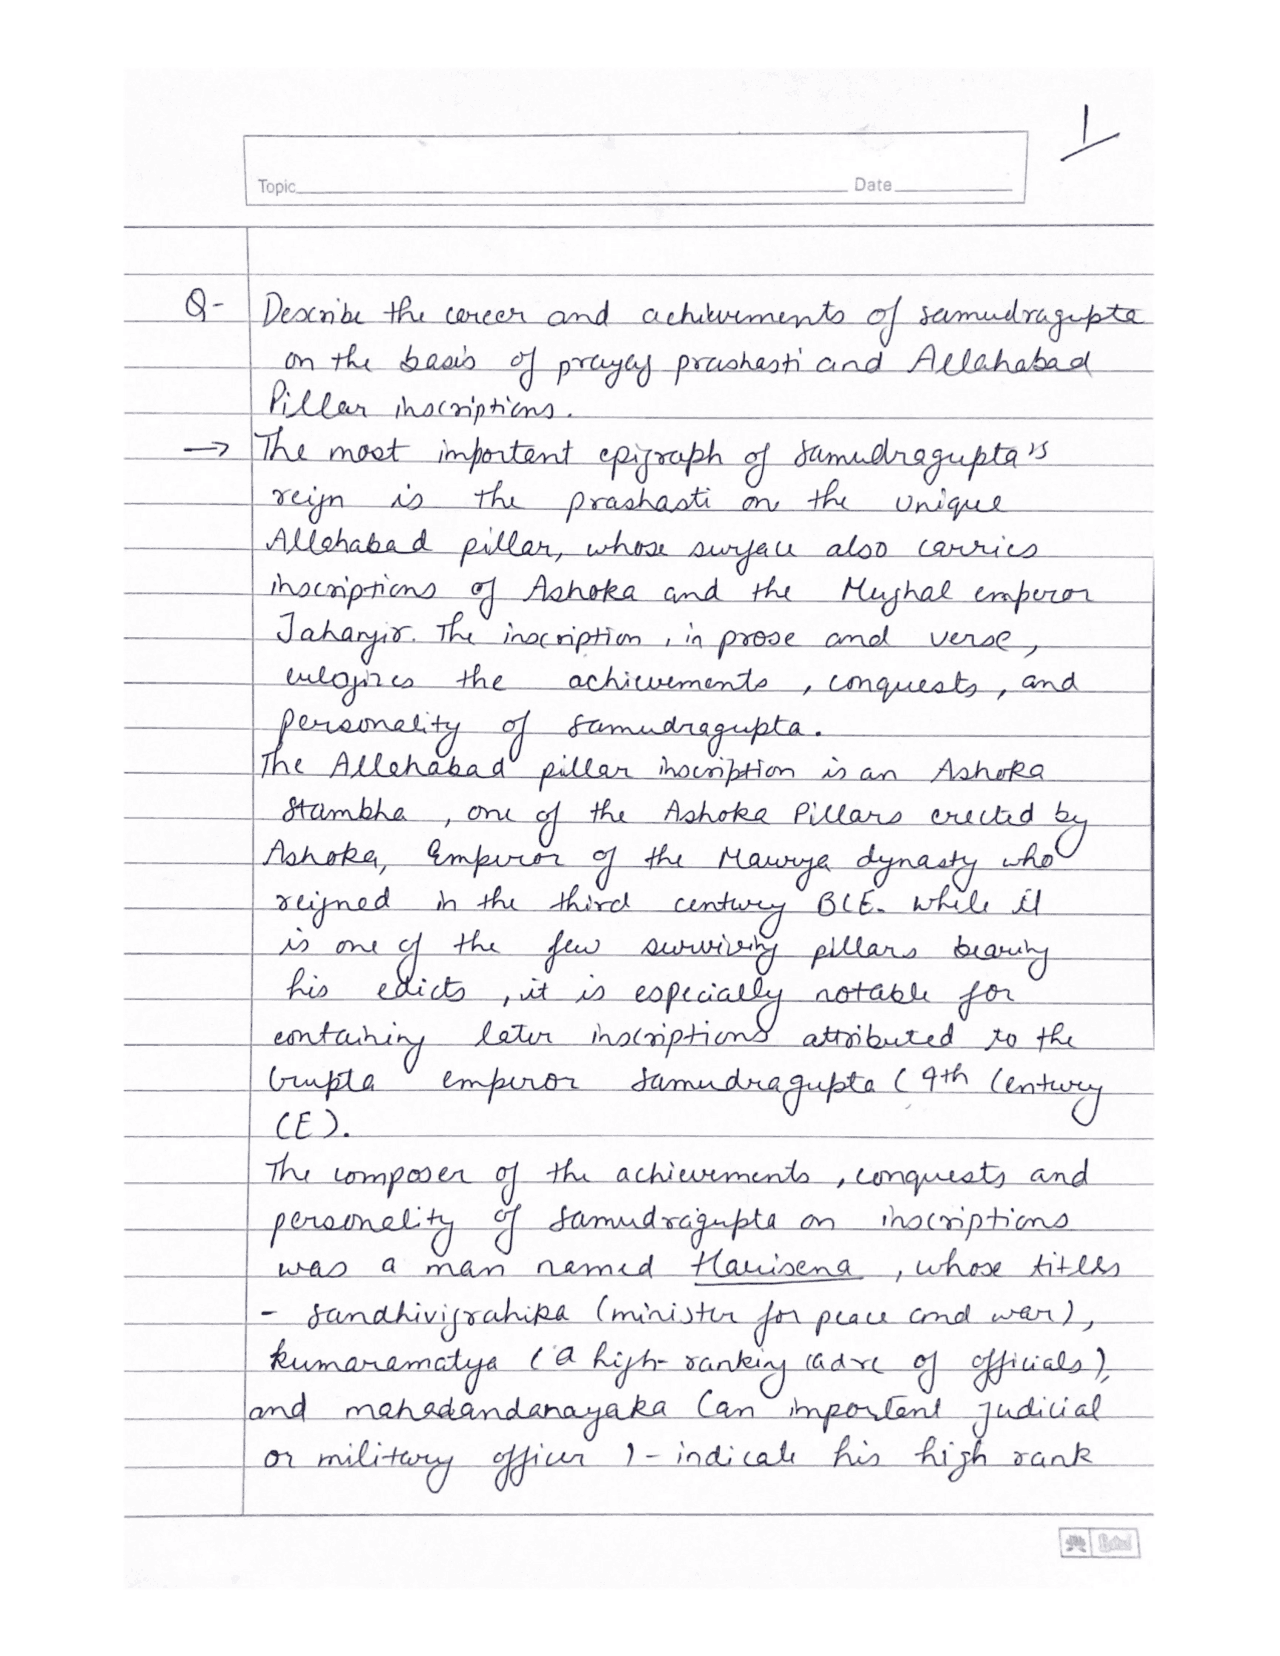 1
Topic
Date
Q- Describe the career and achievements of samudragupta
on the basis of prayag prashasti and Allahabad
Pillar inscriptions.
→ The most important epigraph of Samudragupta's
reign is the prashasti on the unique
Allahabad pillar, whose surface also carries
inscriptions of Ashoka and the Mughal emperor
Jahangir. The inscription, in prose and verse,
eulogizes the achievements, conquests, and
personality of Samudragupta.
The Allahabad pillar inscription is an Ashoka
Stambha, one of the Ashoka Pillars erected by
Ashoka, Emperor of the Maurya dynasty who
reigned in the third century BCE. while it
is one of the few surviving pillars bearing
his edicts, it is especially notable for
containing later inscriptions attributed to the
Gupta emperor Samudragupta (4th Century
CE).
The composer of the achievements, conquests and
personality of Samudragupta on inscriptions
was a man named Harisena, whose titles
- Sandhivigrahika (minister for peace and war),
kumaramatya (a high-ranking cadre of officials),
and mahadandanayaka (an important judicial
or military officer) - indicate his high rank